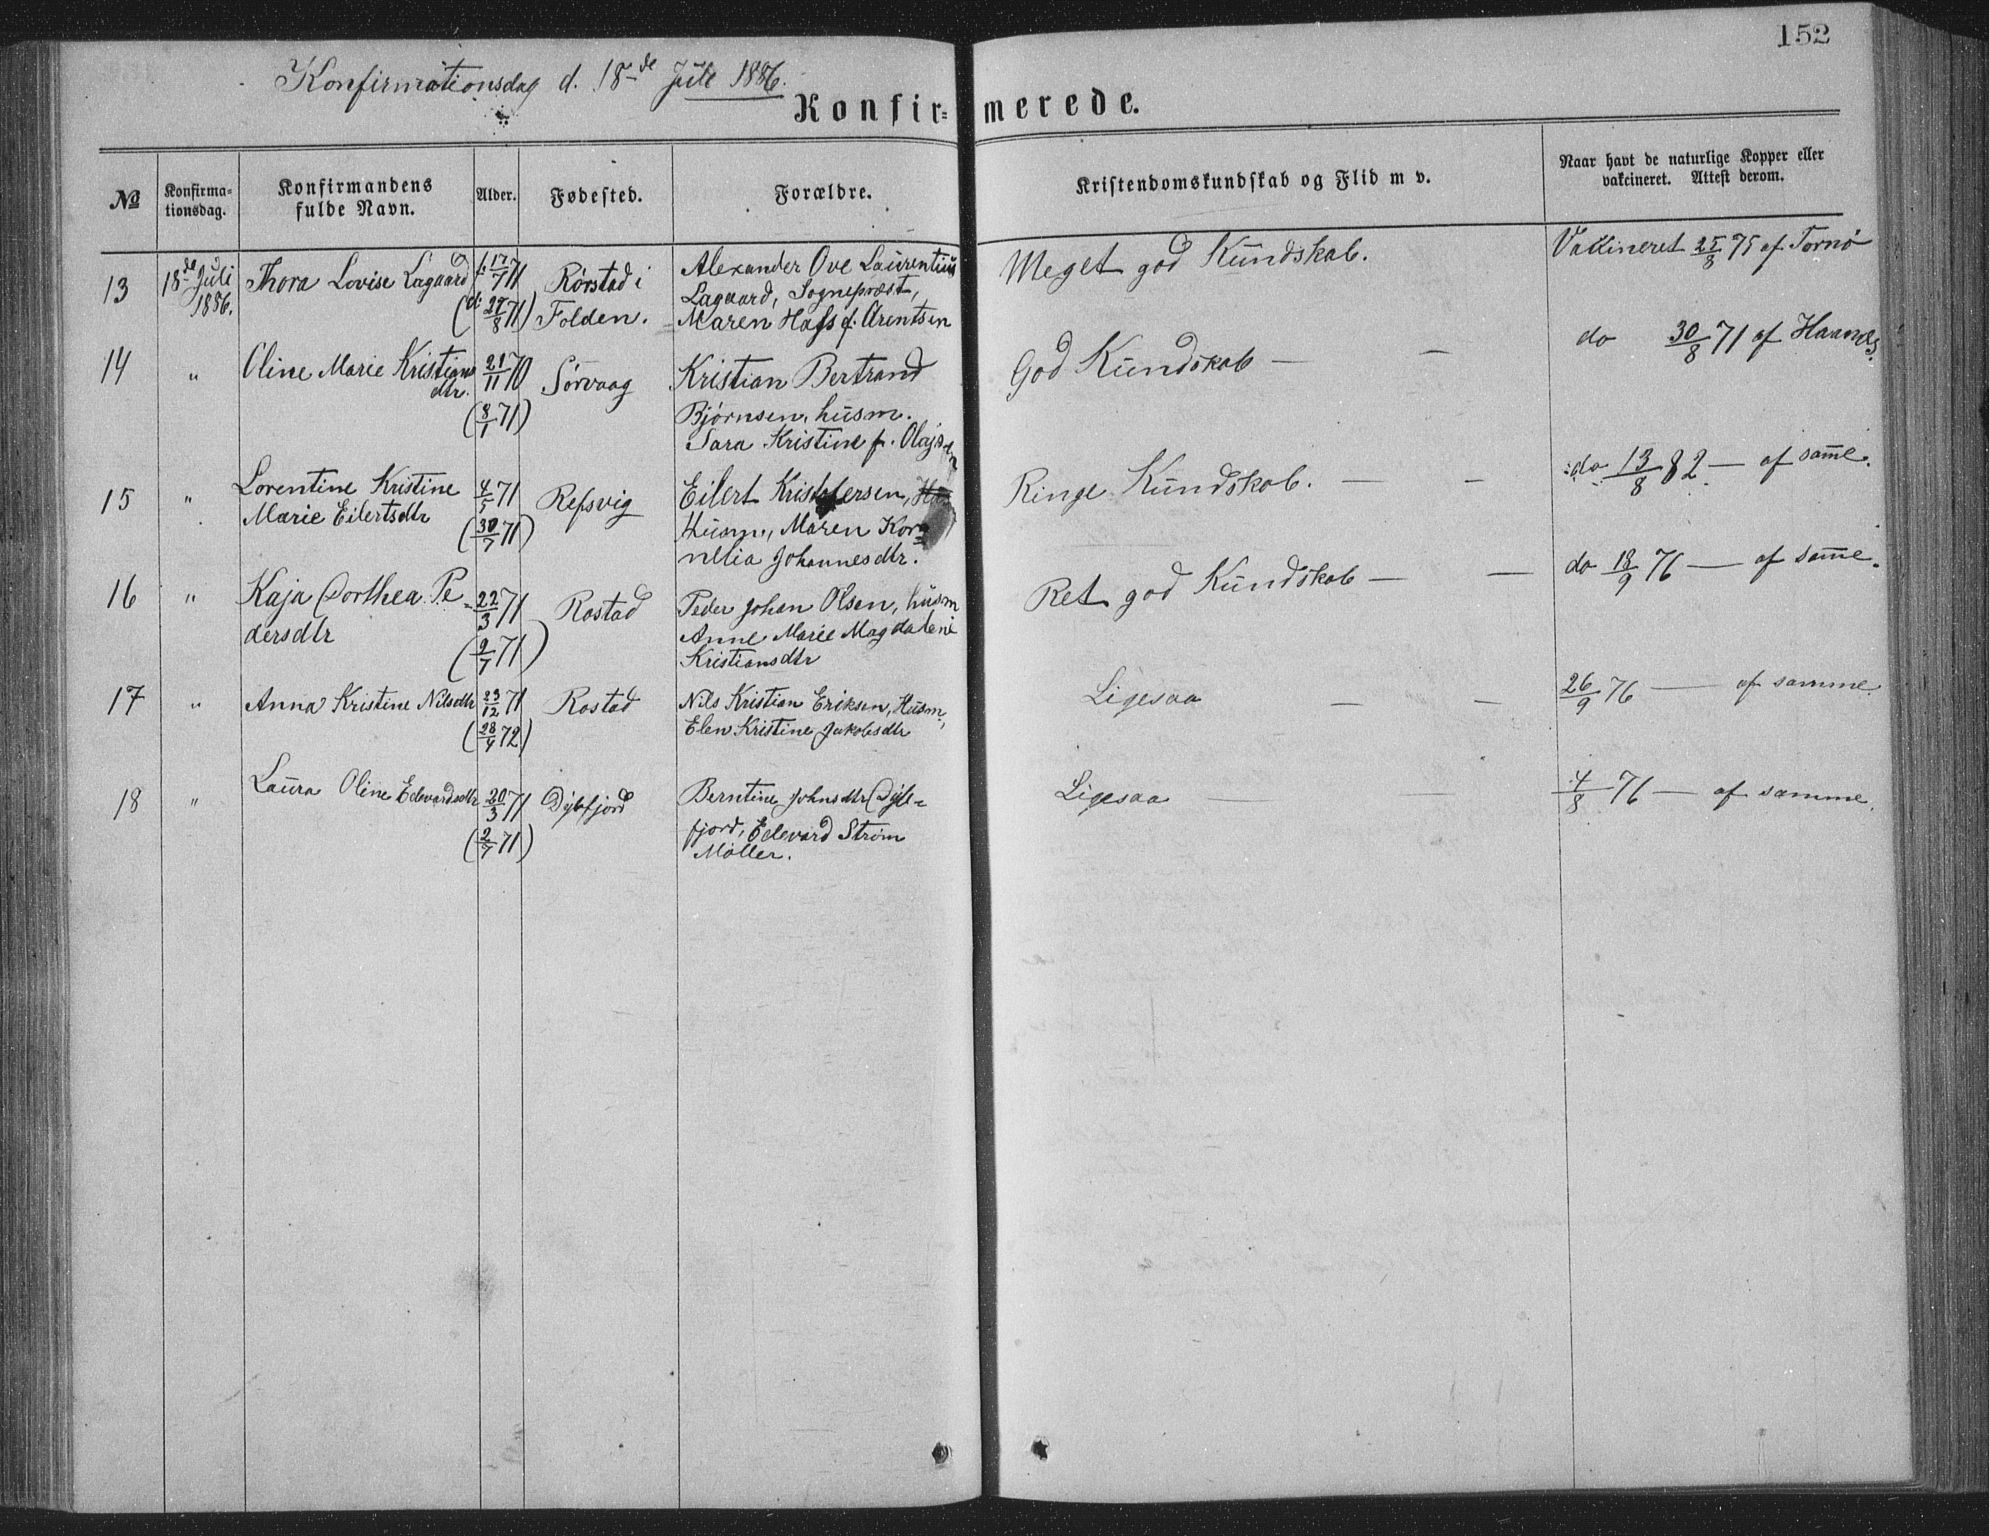 152
Konfirmationsdag d. 18de Juli 1886.
Konfir=merede.
No
Konfirma-
tionsdag.
Konfirmandens
fulde Navn.
Alder.
Fødested.
Forældre.
Kristendomskundskab og Flid m v.
Naar havt de naturlige Kopper eller
vakcineret. Attest derom.
13 18de Juli Thora Lovise Lagaard f: 17/7 71 Rørstad i Alexander Ove Laurentius Meget god Kundskab. Vakkineret 25/8 75 af Tornø
1886. (d: 27/8 71) Folden. Lagaard, Sognepræst,
Maren Hass f: Arentsen
14 " Oline Marie Kristians 21/11 70 Sørvaag Kristian Bertrand God Kundskab — — do 30/8 71 af Haanes
dtr. (8/1 71) Bjørnsen, husm.
Sara Kristine f. Olajsdtr
15 " Lorentine Kristine 4/5 71 Refsvig Eilert Kristofersen, Ringe Kundskab. — — do 13/8 82 — af samme.
Marie Eilertsdtr (30/7 71) Husm, Maren Kor=
nelia Johannesdtr.
16 " Kaja Dorthea Pe= 22/3 71 Rostad Peder Johan Olsen, husm Ret god Kundskab — — do 18/9 76 — af samme.
dersdtr (2/7 71) Anne Marie Magdalene
Kristiansdtr
17 " Anna Kristine Nilsdtr 23/12 71 Rostad Nils Kristian Eriksen, Husm, Ligesaa — — 26/9 76 — af samme
(28/4 72) Elen Kristine Jakobsdtr
18 " Laura Oline Edevardsdtr 20/3 71 Dybfjord Berntine Johnsdtr Dyb= Ligesaa — — 4/8 76 — af samme.
(2/7 71) fjord, Edevard Strøm
Møller.